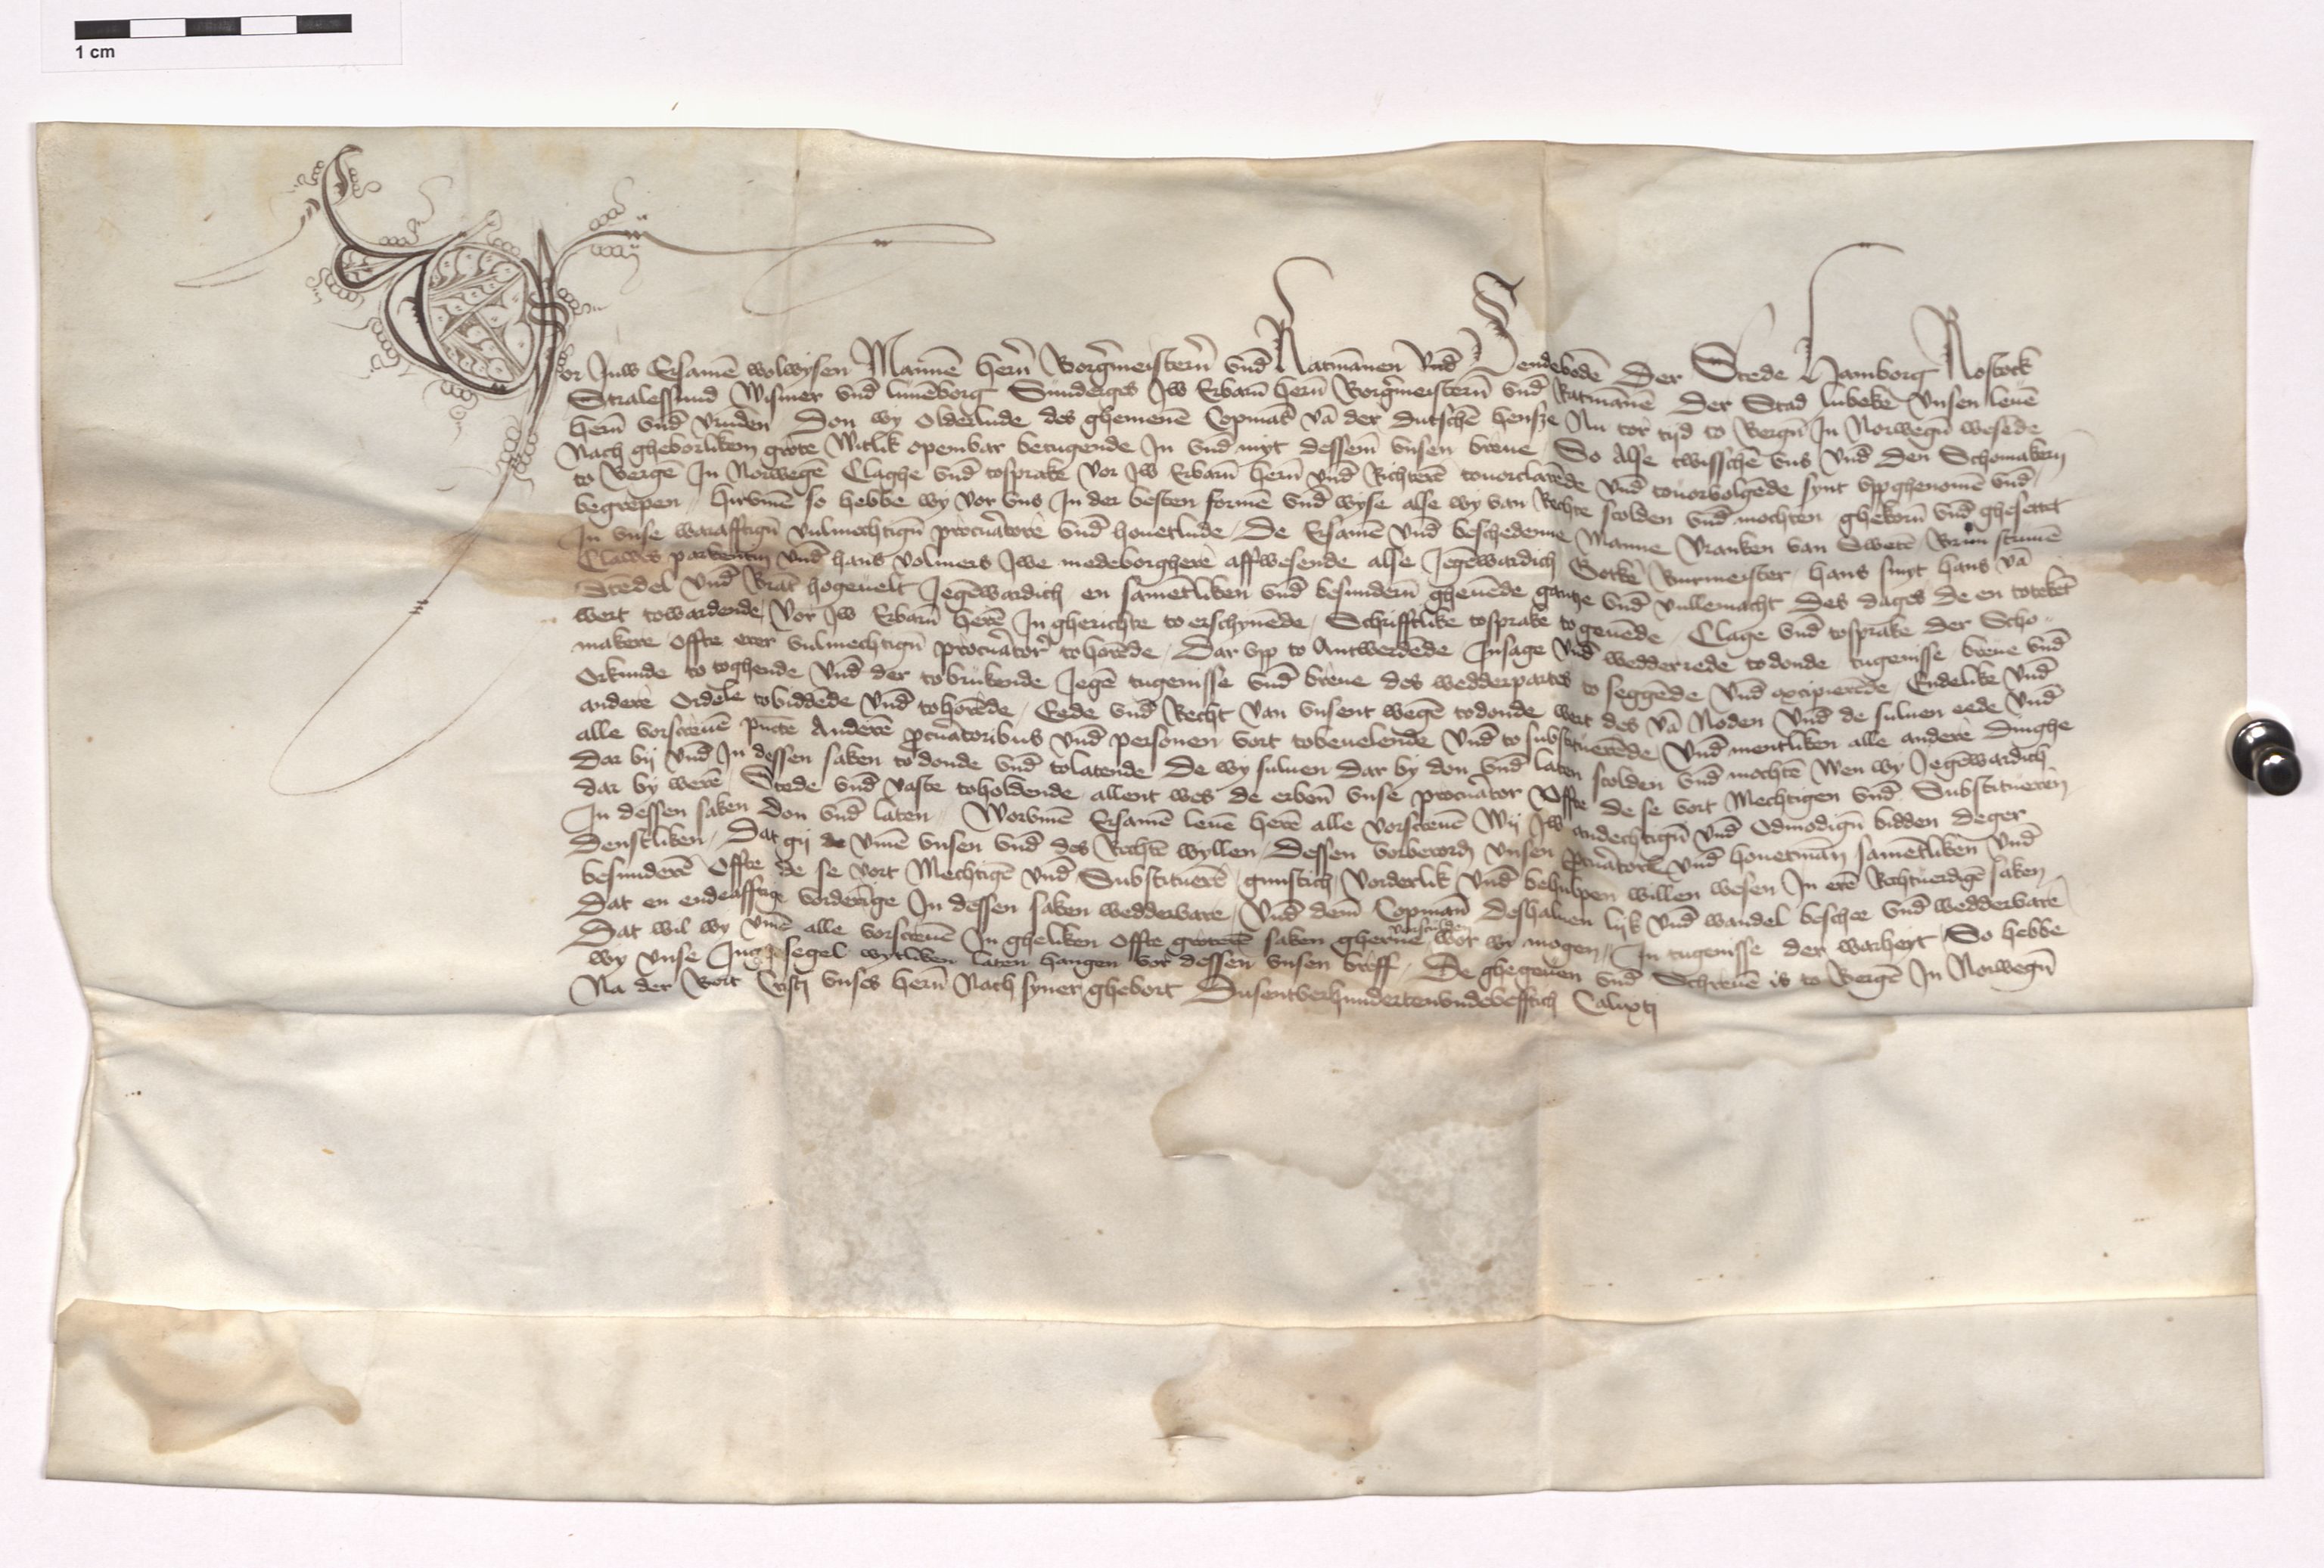 1 cm
Vor Juw Ersamē wolwysen Mannē herñ Borgermeisterñ vnd̄ Ratmānen vnd̄ Sendebodē Der Stede Hamborg Rostock
Stralessund Wismer vnd̄ lunēborg Sunderges Jw Erbarñ herñ Borgermeisterñ vnd̄ Ratmānē Der Stad lubeke vnsen leuē
herñ vnd̄ vrunden Don wy Olderlude des ghemenē Copmās vā der dutschē hensze Nu tor tyd to Bergñ In Norwegñ wesēde
Nach gheborlikem grote Witlik openbar betugende In vnd̄ myt dessem vnsen breue So Alse twisschē vns vnd̄ den Schomakern
to bergē In Norwegē Claghe vnd̄ tosprake vor Jw Erbarñ herñ vnd̄ Richterē touorclarēde vnd̄ touorvolgēde synt vpghenomē vnd̄
begrepen hirvmē so hebbe wy vor vns In der besten formē vnd̄ wyse alse wy van Rechte scolden vnd̄ mochten ghekorñ vnd̄ ghesettet
In vnse warafftigñ vulmechtigñ procuratore vnd̄ houetlude De Ersamē vnd̄ beschedenne Manne Vranken van Dwerē Brun sCriuē
Clawes parkentin vnd̄ hans volmers Jwe medeborgherē affwesende alse Jegēwardich Gotke Burmeister hans smyt hans vā
Stedel vnd̄ Brāt hogeuelt Jegēwardich en sametliken vnd̄ besundern gheuēde gantze vnd̄ vullemacht Des dages de en totekēt
wert towardende vor Jw Erbarñ herē In gherichte to erschynēde Schrifftlike tosprake to geuēde Clage vnd̄ tosprake der Scho
makere offte erer vulmechtigñ procurator tohorēde Dar vp to Antwerdēde Insage vnd̄ wedderrede todonde tugenisse breue vnd̄
Orkunde to toghende vnd̄ der tobrukende Jegē tugenisse vnd̄ breue des wedderpartes to seggēde vnd̄ excipierēde Endelike vnd̄
andere Ordele tobiddēde vnd̄ tohorēde Eede vnd̄ Recht van vnsent wegē todonde wert des vā Noden vnd̄ de suluen eede vnd̄
alle vorscreuē pūcte Anderē procuratoribus vnd̄ personen vort tobeuelende vnd̄ to substituerēde vnd̄ mentliken alle andere Dinghe
Dar bij vnd̄ In dessen saken to donde vnd̄ tolatende De wy suluen Dar by don vnd̄ laten scolden vnd̄ mochtē Wen wy Jegēwardich
dar by werē Stede vnd̄ vaste toholdende allent wes de erbeñ vnse procurator Offte de se vort Mechtigen vnd̄ Substitueren
In dessen saken Don vnd̄ laten Worvmē Ersamē leuē herē alle vorscreuē Wij Jw andechtigñ vnd̄ Odmodigñ bidden deger
denstliken Dat gij vmē vnsen vnd̄ des Rechtē wyllen Dessen vorberord vnsen procuratorē vnd̄ houetmān sametliken vnd̄
besunderē Offte de se vort Mechtigē vnd̄ Substituerē gunstich vorderlik vnd̄ behulpen willen wesen In erē Rechtuerdigē saken
Dat en endeafftige vorderige In dessen saken wedderuare vnd̄ dem Copmañ deshaluen lijk vnd̄ wandel beschee vnd̄ wedderuare
Dat wil wy vmē alle vorscreuē In gheliken Offte groterē saken gherne vorschulden wor wy mogen In tugenisse der warheyt So hebbe
wy vnse Ingesegel wytliken laten hangen vor dessen vnsen breff De ghegeuen vnd̄ Schreuē is to Bergē In Norwegñ
Na der Bort Cristi vnses herñ Nach syner ghebort Dusentverhundertenvndevefftich Calixti